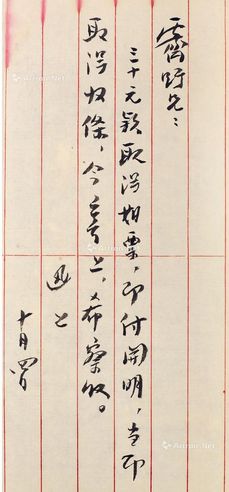 霽野兄：
三十元款取得期票，即付開明，當即
取得收條，今寄上，希察收。
迅上
十月四日
Artron.Net